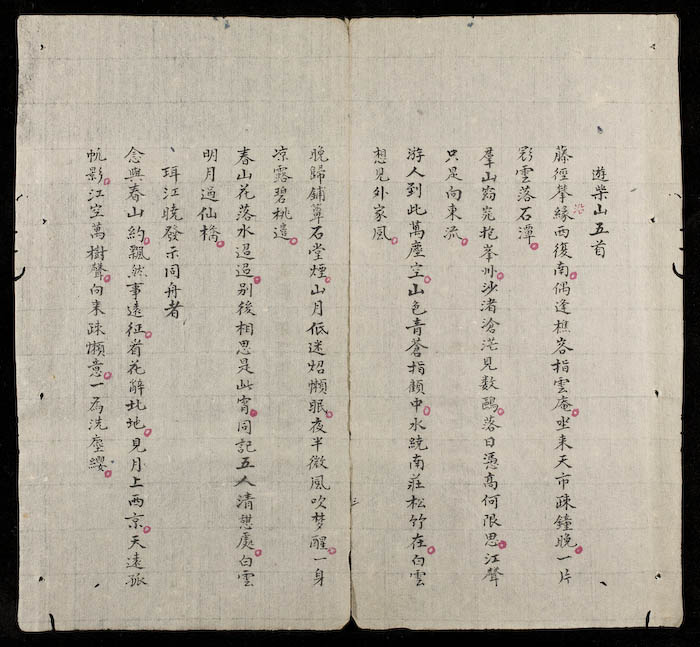 遊柴山五首
藤徑攀緣西復南偶逢樵客指雲庵坐来天市疎鐘晚一片
沿
彩雲落石潭
羣山窈窕抱峯州沙渚滄茫見数鷗落日憑高何限思江聲
只是向東流
游人到此萬塵空山色青蒼指顧中水繞南莊松竹在白雲
想見外家風
三
晚歸鋪簟石堂煙山月低迷炤懶眠夜半微風吹梦醒一身
凉露碧桃邉
春山花落水迢迢别後相思是此宵同記五人清憇處白雲
明月過仙橋
珥江曉發示同舟者
念與春山約飄然事遠征着花辭北地見月上西京天遠孤
帆影江空萬樹聲向来疎懶意一為洗塵纓